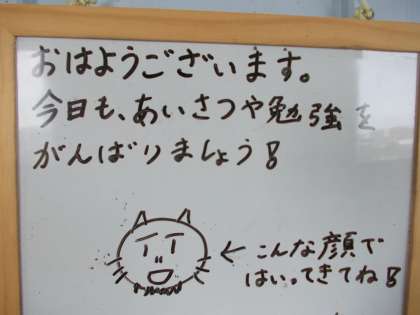 おはようございます。
今日も、あいさつや勉強を
がんばりましょう!
← こんな顔で
はいってきてね!